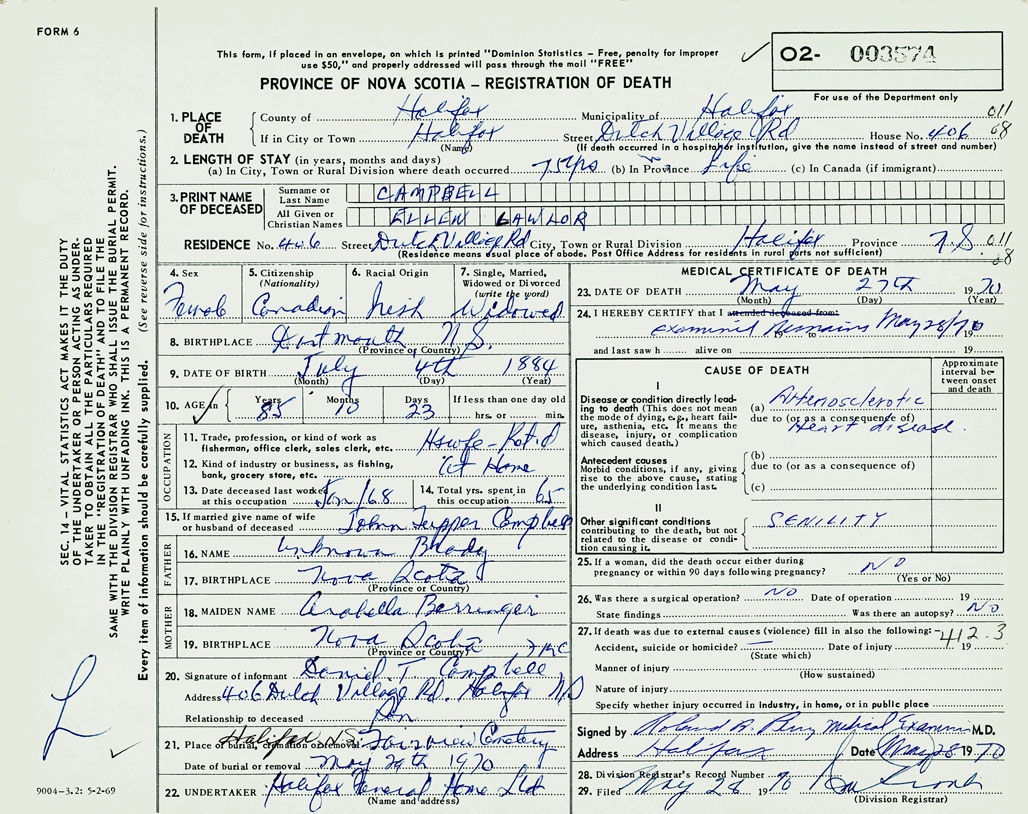 FORM 6
This form, if placed in an envelope, on which is printed "Dominion Statistics – Free, penalty for improper
use $50," and properly addressed will pass through the mail "FREE"
O2- 003574
PROVINCE OF NOVA SCOTIA – REGISTRATION OF DEATH
For use of the Department only
1. PLACE OF DEATH
County of Halifax Municipality of Halifax 011
If in City or Town Halifax Street Dutch Village Rd House No. 406 68
(Name) (If death occurred in a hospital or institution, give the name instead of street and number)
2. LENGTH OF STAY (in years, months and days)
(a) In City, Town or Rural Division where death occurred 75 yrs (b) In Province Life (c) In Canada (if immigrant)
3. PRINT NAME OF DECEASED
Surname or Last Name CAMPBELL
All Given or Christian Names ELLEN LAWLOR
RESIDENCE No. 406 Street Dutch Village Rd City, Town or Rural Division Halifax Province N.S. 011
(Residence means usual place of abode. Post Office Address for residents in rural parts not sufficient) 68
4. Sex Female
5. Citizenship (Nationality) Canadian
6. Racial Origin Irish
7. Single, Married, Widowed or Divorced (write the word) Widowed
8. BIRTHPLACE Dartmouth N.S.
(Province or Country)
9. DATE OF BIRTH July 4th 1884
(Month) (Day) (Year)
10. AGE in Years 85 Months 10 Days 23 If less than one day old hrs. or min.
OCCUPATION
11. Trade, profession, or kind of work as fisherman, office clerk, sales clerk, etc. Hswfe - Ret'd
12. Kind of industry or business, as fishing, bank, grocery store, etc. At Home
13. Date deceased last worked at this occupation Jan/68
14. Total yrs. spent in this occupation 65
15. If married give name of wife or husband of deceased John Tupper Campbell
FATHER
16. NAME Unknown Brady
17. BIRTHPLACE Nova Scotia
(Province or Country)
MOTHER
18. MAIDEN NAME Arabella Berringer
19. BIRTHPLACE Nova Scotia
(Province or Country)
20. Signature of informant Daniel T. Campbell
Address 406 Dutch Village Rd. Halifax NS
Relationship to deceased Son
21. Place of burial, cremation or removal Halifax N.S. Fairview Cemetery
Date of burial or removal May 29th 1970
22. UNDERTAKER Halifax Funeral Home Ltd
(Name and address)
MEDICAL CERTIFICATE OF DEATH
23. DATE OF DEATH May 27th 1970
(Month) (Day) (Year)
24. I HEREBY CERTIFY that I attended deceased from:
Examined Remains May 28/70
19 19
and last saw h alive on 19
CAUSE OF DEATH
Approximate interval between onset and death
I
Disease or condition directly leading to death (This does not mean the mode of dying, e.g., heart failure, asthenia, etc. It means the disease, injury, or complication which caused death.)
(a) Arteriosclerotic
due to (or as a consequence of)
Heart disease.
Antecedent causes
Morbid conditions, if any, giving rise to the above cause, stating the underlying condition last.
(b)
due to (or as a consequence of)
(c)
II
Other significant conditions contributing to the death, but not related to the disease or condition causing it.
SENILITY
25. If a woman, did the death occur either during pregnancy or within 90 days following pregnancy? NO
(Yes or No)
26. Was there a surgical operation? NO Date of operation 19
State findings Was there an autopsy? NO
27. If death was due to external causes (violence) fill in also the following: 412.3
Accident, suicide or homicide? — Date of injury 19
(State which)
Manner of injury
(How sustained)
Nature of injury
Specify whether injury occurred in industry, in home, or in public place
Signed by Roland A. Perry Medical Examiner M.D.
Address Halifax Date May 28 1970
28. Division Registrar's Record Number
29. Filed May 28 1970
(Division Registrar)
SEC. 14 – VITAL STATISTICS ACT MAKES IT THE DUTY
OF THE UNDERTAKER OR PERSON ACTING AS UNDER-
TAKER TO OBTAIN ALL THE PARTICULARS REQUIRED
IN THE "REGISTRATION OF DEATH" AND TO FILE THE
SAME WITH THE DIVISION REGISTRAR WHO SHALL ISSUE THE BURIAL PERMIT.
WRITE PLAINLY WITH UNFADING INK. THIS IS A PERMANENT RECORD.
Every item of information should be carefully supplied. (See reverse side for instructions.)
L
9004-3.2: 5-2-69